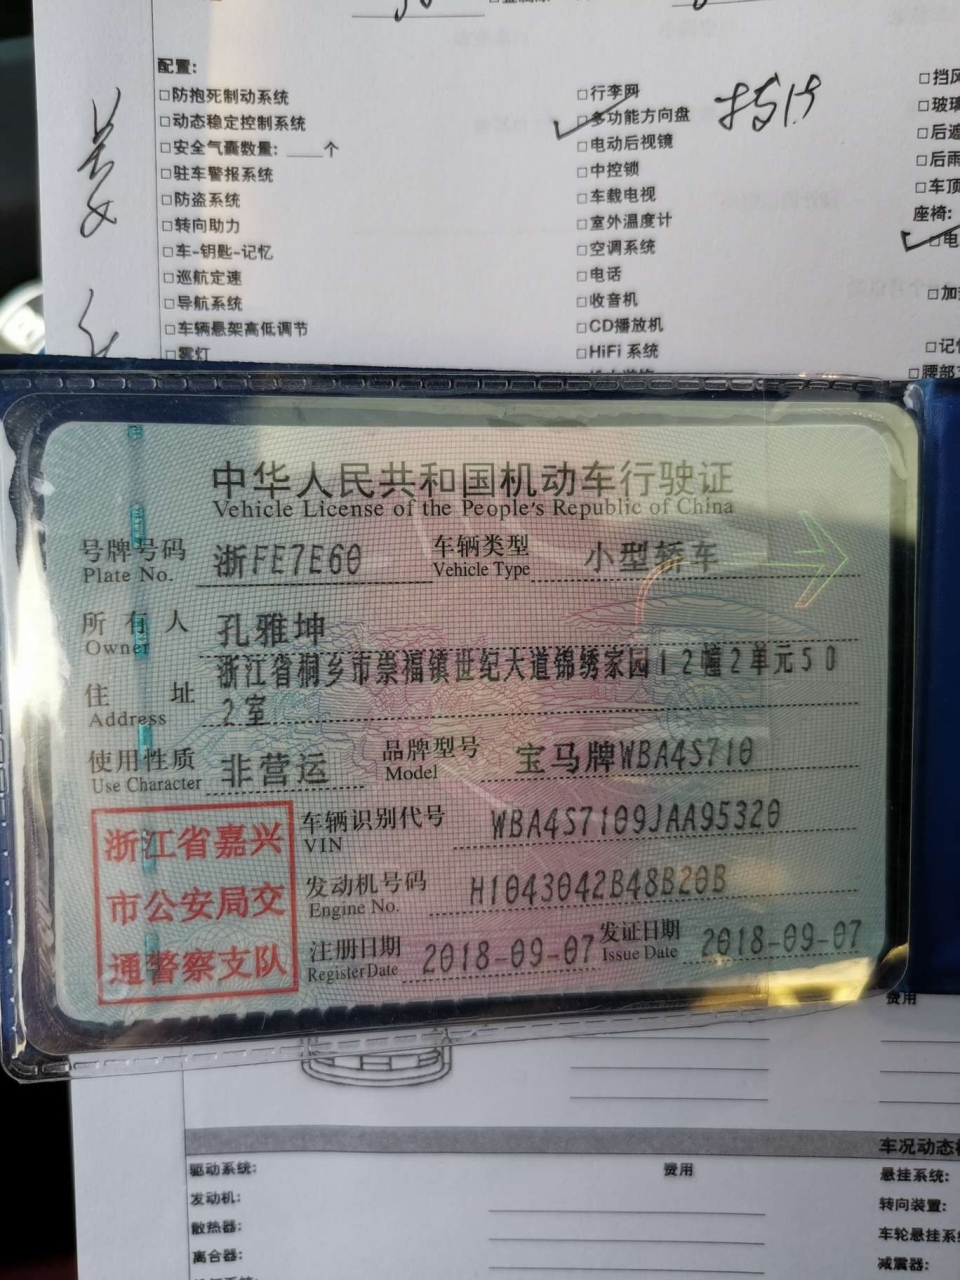 配置:
□防抱死制动系统
□动态稳定控制系统
□安全气囊数量: ____个
□驻车警报系统
□防盗系统
□转向助力
□车-钥匙-记忆
□巡航定速
□导航系统
□车辆悬架高低调节
□雾灯
□行李网
□多功能方向盘
□电动后视镜
□中控锁
□车载电视
□室外温度计
□空调系统
□电话
□收音机
□CD播放机
□HiFi 系统
□挡风
□玻璃
□后遮
□后雨
□车顶
座椅:
□电
□加
□记忆
□腰部
中华人民共和国机动车行驶证
Vehicle License of the People's Republic of China
号牌号码 浙FE7E60 车辆类型 小型轿车
Plate No. Vehicle Type
所有人 孔雅坤
Owner
住址 浙江省桐乡市崇福镇世纪大道锦绣家园12幢2单元50
Address 2室
使用性质 非营运 品牌型号 宝马牌WBA4S710
Use Character Model
浙江省嘉兴
市公安局交
通警察支队
车辆识别代号 WBA4S7109JAA95320
VIN
发动机号码 H1043042B48B20B
Engine No.
注册日期 2018-09-07 发证日期 2018-09-07
Register Date Issue Date
费用
车况动态
驱动系统: 费用
发动机:
散热器:
离合器:
悬挂系统:
转向装置:
车轮悬挂系
减震器: